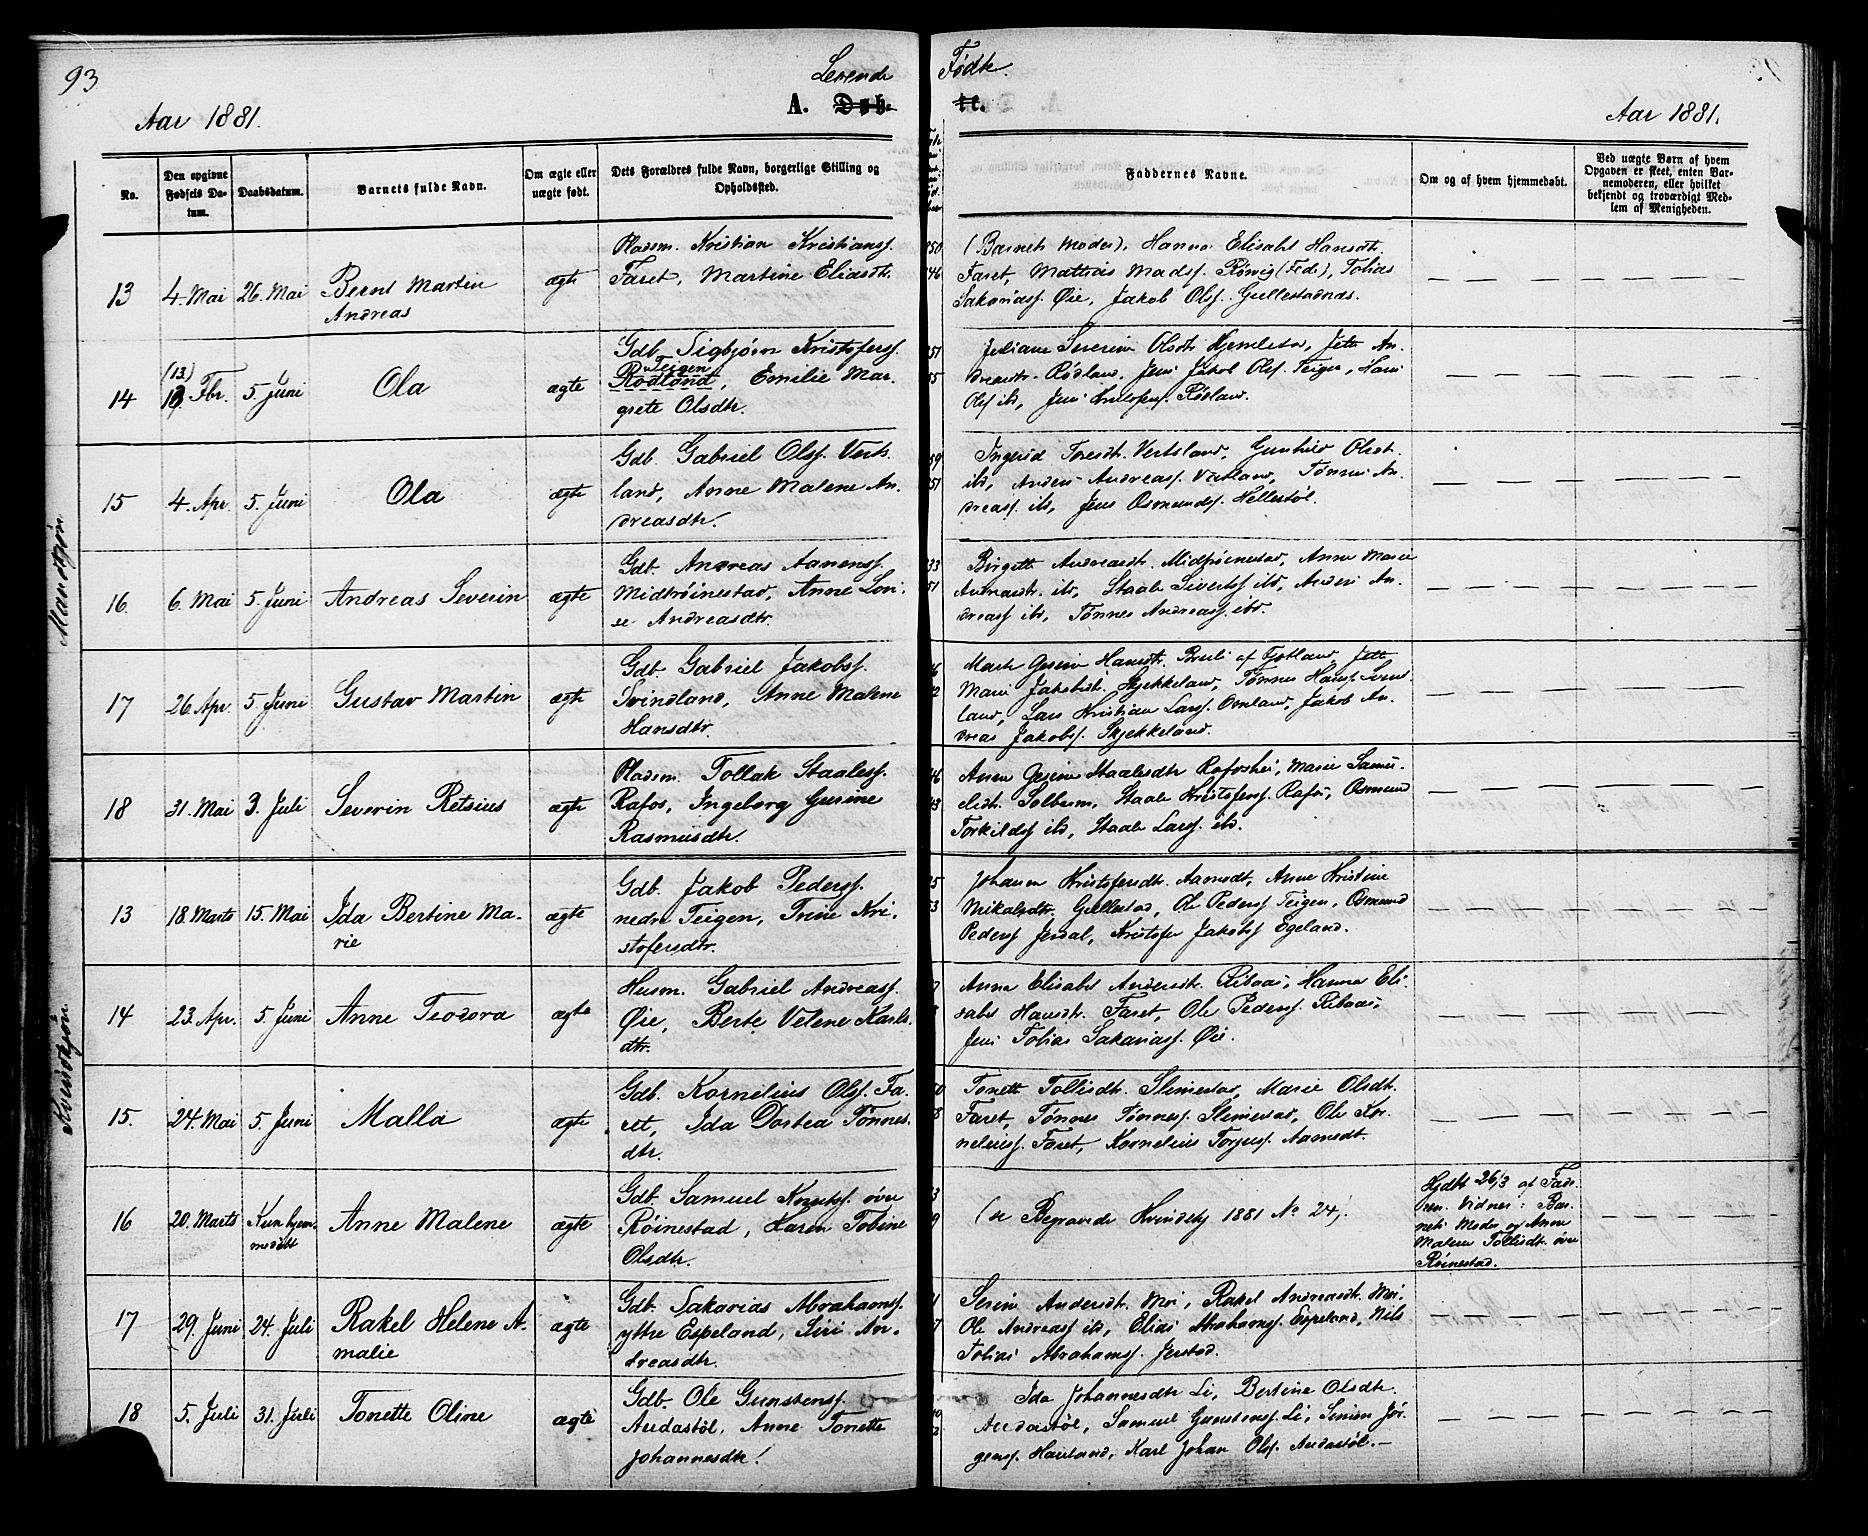 93
Levende
Fødte.
Aar 1881.
A. Døb-
te.
Aar 1881.
No.
Den opgivne Fødsels Da-
tum.
Daabsdatum.
Barnets fulde Navn.
Om ægte eller
uægte født.
Dets Forældres fulde Navn, borgerlige Stilling og
Opholdsted.
Faddernes Navne.
Om og af hvem hjemmedøbt.
Ved uægte Børn af hvem
Opgaven er skeet, enten Bar-
nemoderen, eller hvilket
bekjendt og troværdigt Med-
lem af Menigheden.
Mandkjøn
13
4. Mai
26. Mai
Bernt Martin
Andreas
ægte
Pladsm. Kristian Kristiansf.
Faret, Martine Eliasdt.
50
46
(Barnets Moder), Hanna Elisabet Hansdt.
Faret, Mathias Madsf. Rørvig (Fed.), Tobias
Sakariasf. Øie, Jakob Olsf. Gullestadnæs.
14
(13)
Fbr.
5. Juni
Ola
ægte
Gdb. Sigbjørn Kristofersf.
Teigen
Rødland, Emilie Mar-
grete Olsdtr.
57
55
Juliane Severine Olsdtr. Hjemlestad, Jete An-
dreasdtr. Rødland, Jens Jakob Olsf. Teigen, Hans
Olsf ibd, Jens Kristofersf. Rødland.
15
4. Apr.
5. Juni
Ola
ægte
Gdb. Gabriel Olsf. Verts-
land, Anne Malene An-
dreasdtr.
59
57
Ingerid Toresdt. Vertsland, Gunhild Olsdt.
ibd, Anders Andreasf. Vatland, Tønnes An-
dreasf. ibd, Jens Osmundsf. Hellestøl.
16
6. Mai
5. Juni
Andreas Severin
ægte
Gdb. Andreas Aanensf.
Midtrøinestad, Anne Lovi-
se Andreasdtr.
33
51
Birgitte Andreasdt. Midtrøinestad, Anne Marie
Andreasdtr. ibd, Staale Sivertsf ibd, Anders An-
dreasf ibd, Tønnes Andreasf. ibd.
17
26. Apr.
5. Juni
Gustav Martin
ægte
Gdb. Gabriel Jakobsf.
Svindland, Anne Malene
Hansdtr.
46
Marte Gesine Hansdtr. Breli af Fjotland, Jete
Marie Jakobsdt. Skjekkeland, Tønnes Hansf. Svind-
land, Lars Kristian Larsf. Omland, Jakob An-
dreas Jakobsf. Skjekkeland.
18
31. Mai
3. Juli
Severin Retsius
ægte
Pladsm. Tollak Staalesf.
Rafos, Ingeborg Gurine
Rasmusdtr.
46
43
Anne Gesine Staalesdtr Rafoshei, Marie Samu-
elsdt. Solheim, Staale Kristofersf. Rafos, Osmund
Torkildsf ibd, Staale Larsf. ibd.
Kvindekjøn
13
18. Marts
15. Mai
Ida Bertine Ma-
rie
ægte
Gdb. Jakob Pedersf.
nedre Teigen, Trine Kri-
stofersdtr.
35
53
Johanne Kristofersdt. Aamodt, Anne Kristine
Mikalsdtr. Gullestad, Ole Pedersf Teigen, Osmund
Pedersf Jerdal, Kristofer Jakobsf Egeland.
14
23. Apr.
5. Juni
Anne Teodora
ægte
Husm. Gabriel Andreasf.
Øie, Berte Velene Karls-
dtr.
Anna Elisabet Andersdt. Risaas, Hanna Eli-
sabet Hansdt. Faret, Ole Pedersf. Risaas,
Jens Tobias Sakariasf. Øie.
15.
24. Mai
5. Juni
Malla
ægte
Gdb. Kornelius Olsf. Fa-
ret, Ida Dortea Tønnes-
dtr.
50
58
Tonette Tollisdt. Slimestad, Marie Olsdt.
Faret, Tønnes Tønnesf. Slimestad, Ole Kor-
neliusf. Faret, Kornelius Torjusf. Aamodt.
16
20. Marts
Kun hjem-
medøbt
Anne Malene
ægte
Gdb. Samuel Knutsf. øvre
Røinestad, Karen Tobine
Olsdtr.
(se Begravede Kvindekj 1881 No 24).
Hjdbt 26/3 af Fade-
ren. Vidner: Bar-
nets Moder og Anne
Malene Tollisdt. øvre
Røinestad.
17
29. Juni
24. Juli
Rakel Helene A-
malie
ægte
Gdb. Sakarias Abrahamsf.
ytre Espeland, Siri An-
dreasdtr.
Serine Andersdt. Moi, Rakel Andreasdt. Moi,
Ole Andreasf ibd, Elias Abrahamsf. Espeland, Nils
Tobias Abrahamsf. Jerstad.
18
5. Juli
31. Juli
Tonette Oline
ægte
Gdb. Ole Gunstensf.
Audastøl, Anne Tonette
Johannesdtr!
Ida Johannesdtr Li, Bertine Olsdtr.
Audastøl, Samuel Gunstensf. Li, Simon Jør-
gensf. Hauland, Karl Johan Olsf. Audastøl.